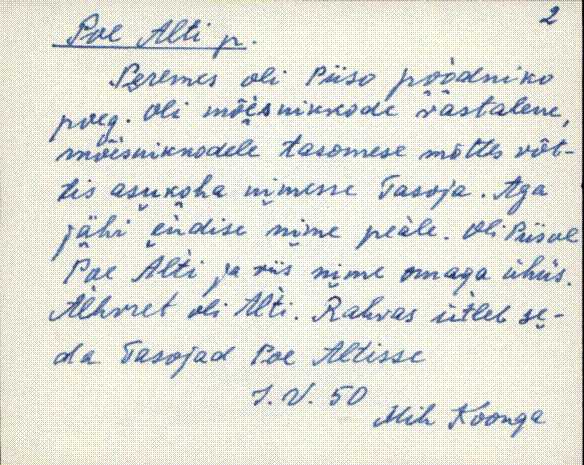 2
Poe Alti p.
Peremes oli Piiso poodniko
poeg. Oli mõisnikkode vastalene,
mõisnikkodele tasomese mõttes võt-
tis asukoha nimesse Tasoja. Aga
jähi endise nime peale. Oli Piisole
Poe Alti ja viis nime omaga ühüs.
Alhvret oli Alti. Rahvas ütleb se-
da Tasojad Poe Altisse
J. V. 50
Mih Koonga